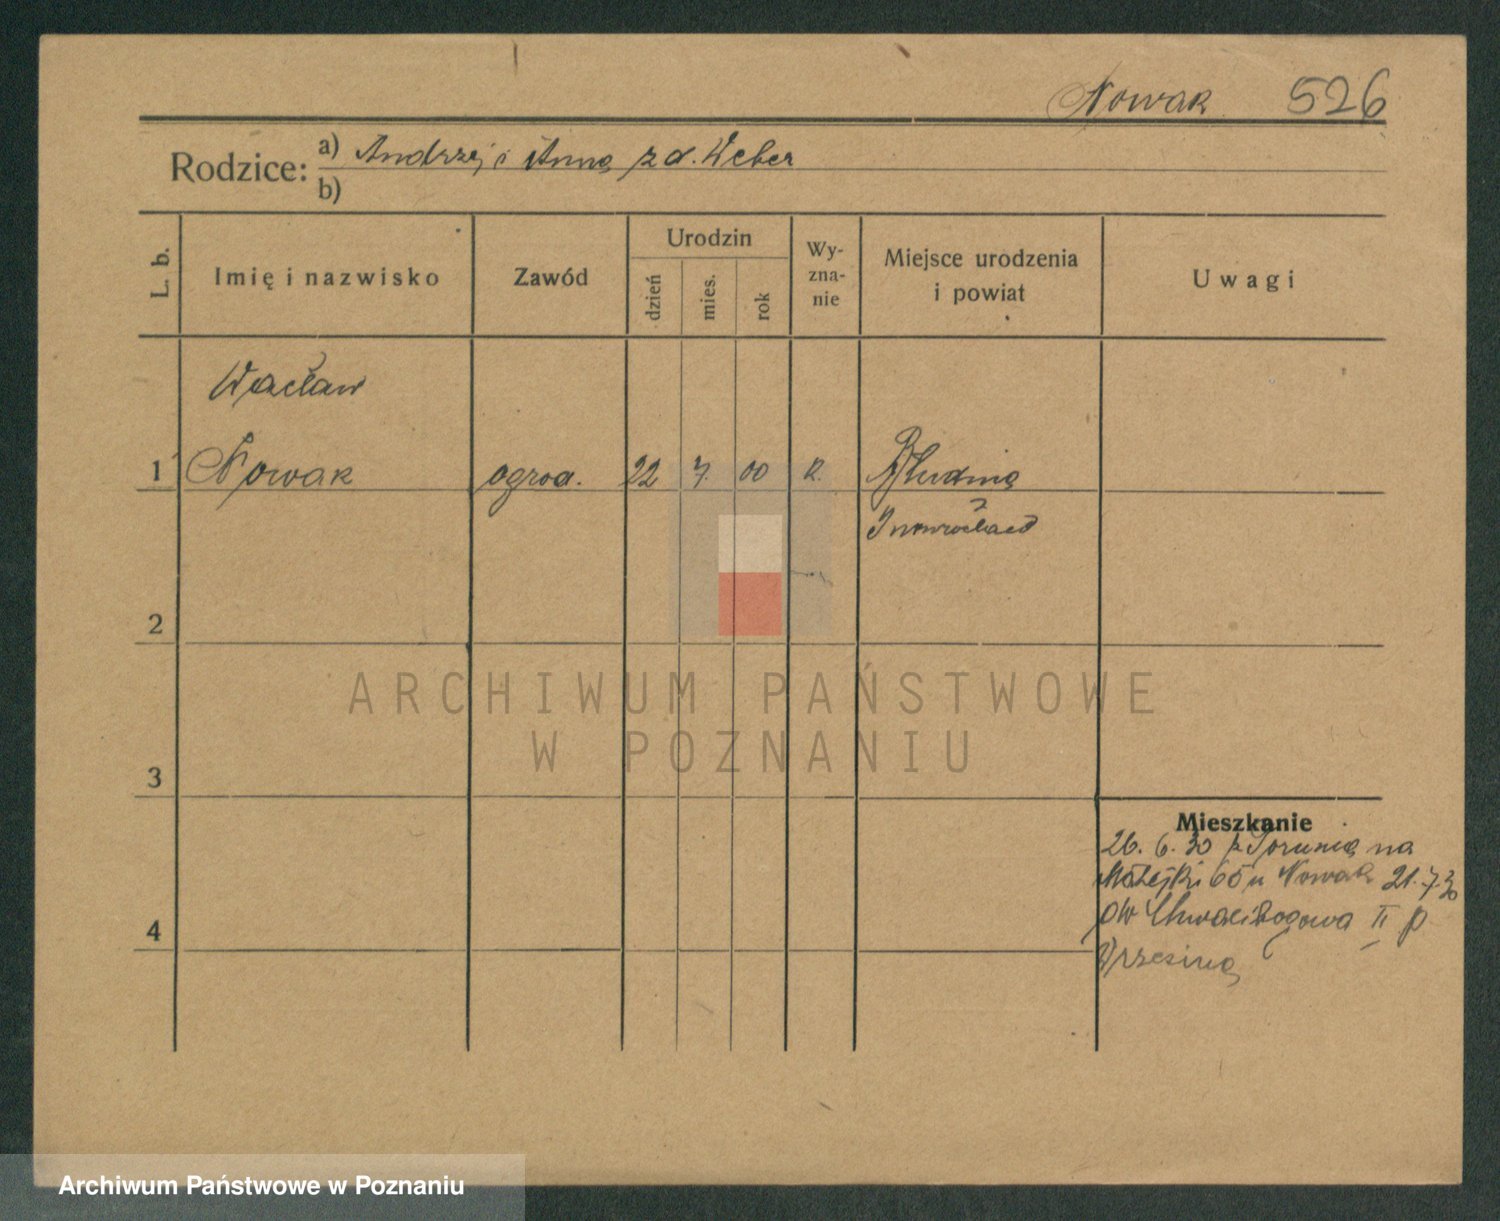 Nowak 526
Rodzice: a) Andrzej i Anna z d. Weber
b)
L. b. Imię i nazwisko Zawód Urodzin dzień mies. rok Wy-zna-nie Miejsce urodzenia i powiat Uwagi
Wacław
1 Nowak ogrod. 22 7. 00 R.
Inowrocław
2
3
4
Mieszkanie
26. 6. 30 z Torunia na
Matejki 65 u Nowak 21.7.30
pow
Września
ARCHIWUM PAŃSTWOWE
W POZNANIU
Archiwum Państwowe w Poznaniu